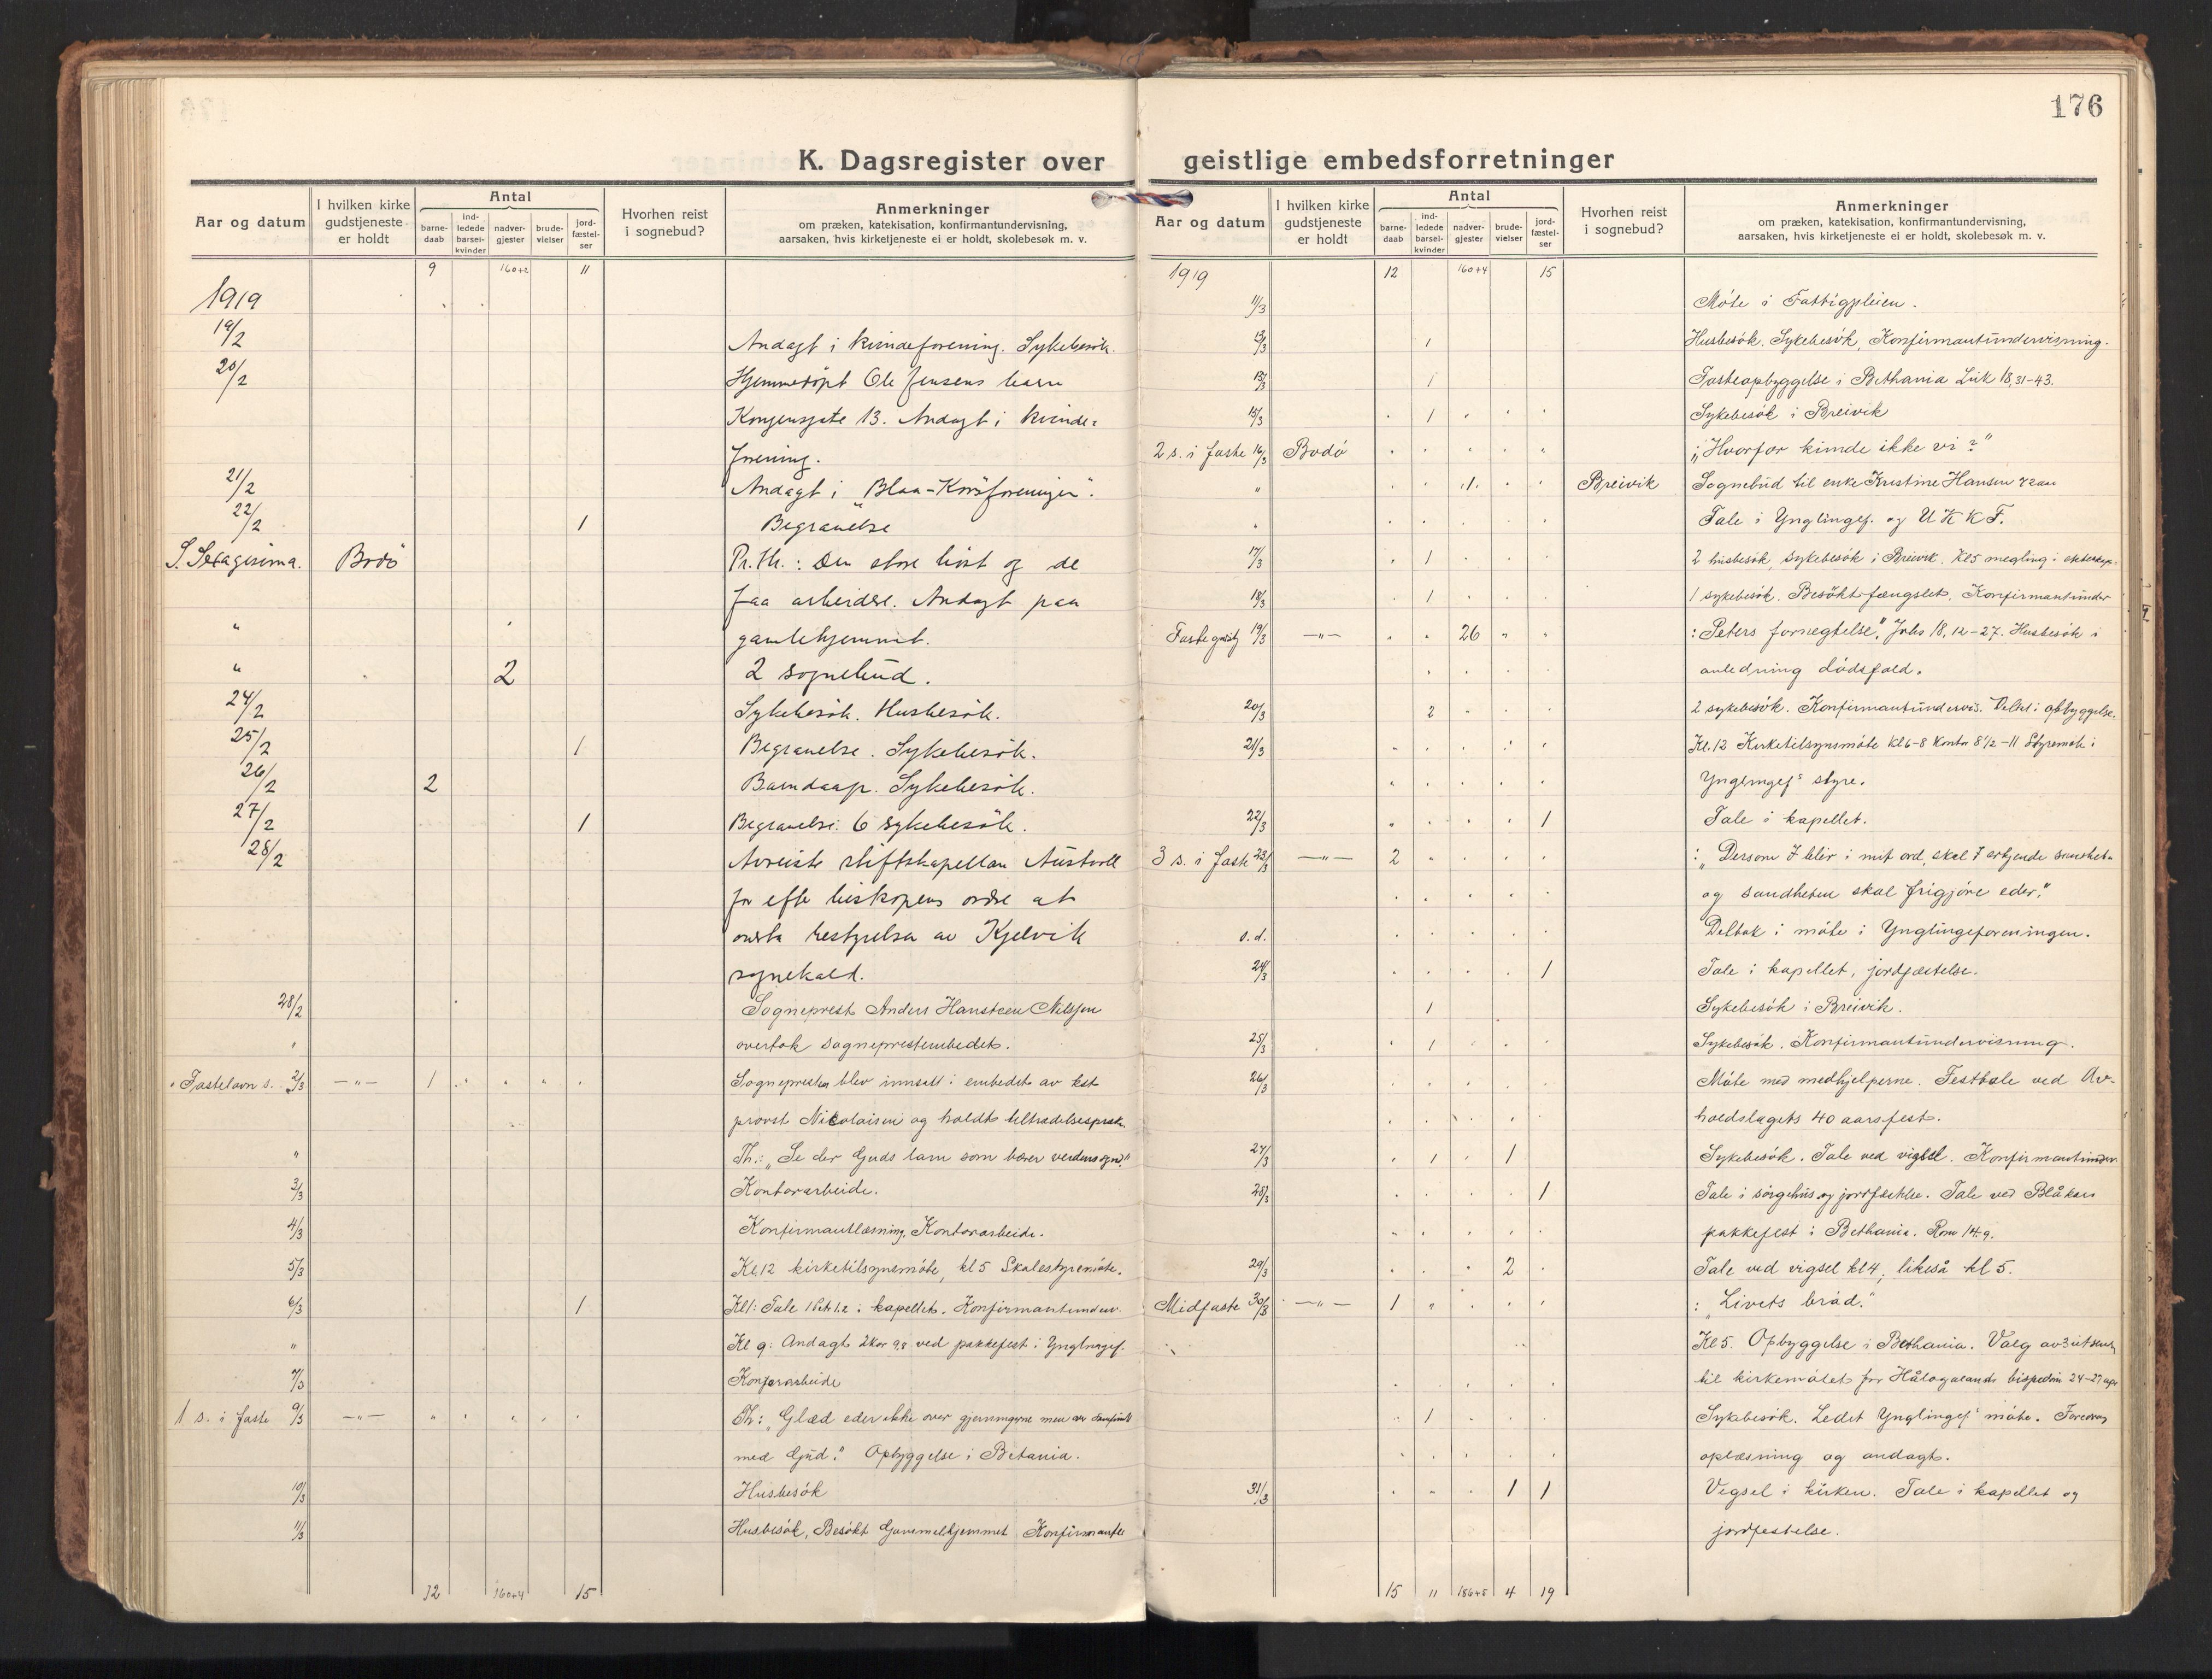 176
K. Dagsregister over geistlige embedsforretninger
Aar og datum
I hvilken kirke gudstjeneste er holdt
Antal
barne-daab
ind-ledede barsel-kvinder
nadver-gjester
brude-vielser
jord-fæstel-ser
Hvorhen reist i sognebud?
Anmerkninger
om præken, katekisation, konfirmantundervisning,
aarsaken, hvis kirketjeneste ei er holdt, skolebesøk m. v.
9 160+2 11
1919
19/2 Andagt i kvindeforening. Sykebesök.
20/2 Hjemmedöpt Ole Jensens barn
Kongensgate 13. Andagt i kvinde-
forening.
21/2 Andagt i "Blaa-Korsforeningen".
22/2 1 Begravelse
S. Sexagesima. Bodö Pr. th.: Den store höst og de
faa arbeidere. Andagt paa
" gamlehjemmet.
" 2 2 sognebud.
24/2 Sykebesök. Husbesök.
25/2 1 Begravelse. Sykebesök.
26/2 2 Barndaap. Sykebesök.
27/2 1 Begravelse. 6 sykebesök.
28/2 Avreiste stiftskapellan Austvoll
for efter biskopens ordre at
overta bestyrelsen av Kjelvik
sognekald.
28/2 Sogneprest Anders Hansteen Nilssen
" overtok sogneprestembedet.
Fastelavn s. 2/3 —"— 1 Sognepresten blev innsatt i embedet av kst
provst Nicolaisen og holdt tiltrædelsespræk.
" Th.: "Se der Guds lam som bærer verdens synd."
3/3 Kontorarbeide.
4/3 Konfirmantlæsning. Kontorarbeide.
5/3 Kl. 12 kirketilsynsmöte, kl 5 Skolestyremöte.
6/3 1 Kl 1: Tale 1 Pet 1.2 i kapellet. Konfirmantunderv.
" Kl 9: Andagt 2 Kor 9,8 ved pakkefest i Ynglingef.
7/3 Kontorarbeide
1 s. i faste 9/3 —"— Th: "Glæd eder ikke over gjerningerne men over samfund
med Gud." Opbyggelse i Betania.
10/3 Husbesök
11/3 Husbesök, Besökt Gammelhjemmet Konfirmantle
12 160+4 15
Aar og datum
I hvilken kirke gudstjeneste er holdt
Antal
barne-daab
ind-ledede barsel-kvinder
nadver-gjester
brude-vielser
jord-fæstel-ser
Hvorhen reist i sognebud?
Anmerkninger
om præken, katekisation, konfirmantundervisning,
aarsaken, hvis kirketjeneste ei er holdt, skolebesøk m. v.
1919 12 160+4 15
11/3 Möte i Fattigpleien.
12/3 1 Husbesök. Sykebesök, Konfirmantundervisning.
13/3 1 Fasteopbyggelse i Bethania Luk 18,31-43.
15/3 1 Sykebesök i Breivik
2 s. i faste 16/3 Bodö : "Hvorfor kunde ikke vi?"
" 1 Breivik Sognebud til enke Kristine Hansen 72 aar
" Tale i Ynglingef. og U K K F.
17/3 1 2 husbesök, sykebesök i Breivik. Kl 5 megling i ekteskap.
18/3 1 1 sykebesök. Besökt fængslet. Konfirmantunder
Fastegudstj 19/3 —"— 26 : "Peters fornegtelse". Johs 18, 12-27. Husbesök i
anledning dödsfald.
20/3 2 2 sykebesök. Konfirmantundervis. Deltat i opbyggelse.
21/3 Kl. 12 Kirketilsynsmöte kl 6-8 Kontor 8 1/2 - 11 Styremöte i
Ynglingefs styre.
22/3 1 Tale i kapellet.
3 s. i faste 23/3 —"— 2 : "Dersom I blir i mit ord, skal I erkjende sandheten
og sandheten skal frigjöre eder."
s. d. Deltok i möte i Ynglingeforeningen.
24/3 1 Tale i kapellet, jordfæstelse.
1 Sykebesök i Breivik.
25/3 1 Sykebesök. Konfirmantundervisning.
26/3 Möte med medhjelperne. Festtale ved Av-
holdslagets 40 aarsfest.
27/3 1 1 Sykebesök. Tale ved vigsel. Konfirmantunder
28/3 1 Tale i sörgehus og jordfæstelse. Tale ved Blåkors
pakkefest i Bethania. Rom 14.9.
29/3 2 Tale ved vigsel kl 4, likeså kl 5.
Midfaste 30/3 —"— 1 : "Livets bröd."
Kl 5. Opbyggelse i Bethania. Valg av 3 utsend
til kirkemötet for Hålogaland bispedöm 24-27 apr
1 Sykebesök. Ledet Ynglingefs möte. Foredrag
oplæsning og andagt.
31/3 1 1 Vigsel i kirken. Tale i kapellet og
jordfestelse.
15 11 186+5 4 19